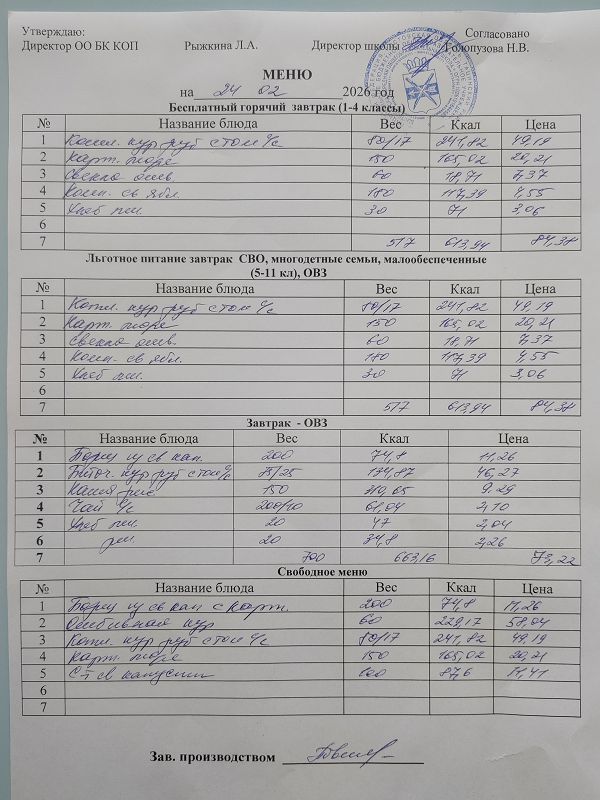 Утверждаю: Согласовано
Директор ОО БК КОП Рыжкина Л.А. Директор школы Голопузова Н.В.
МЕНЮ
на 24 02 2026 год
Бесплатный горячий завтрак (1-4 классы)
№ Название блюда Вес Ккал Цена
1 Котл. кур руб с том м/с 80/17 241,82 49,19
2 Карт. пюре 150 165,02 20,21
3 Свекла отв. 60 18,71 7,37
4 Комп. св ябл. 180 117,39 4,55
5 Хлеб пш. 30 71 3,06
6
7 517 613,94 84,38
Льготное питание завтрак СВО, многодетные семьи, малообеспеченные
(5-11 кл), ОВЗ
№ Название блюда Вес Ккал Цена
1 Котл. кур руб с том м/с 80/17 241,82 49,19
2 Карт. пюре 150 165,02 20,21
3 Свекла отв. 60 18,71 7,37
4 Комп. св ябл. 180 117,39 4,55
5 Хлеб пш. 30 71 3,06
6
7 517 613,94 84,38
Завтрак - ОВЗ
№ Название блюда Вес Ккал Цена
1 Борщ из св кап. 200 74,8 11,26
2 Биточ. кур руб с том м/с 75/25 134,87 46,27
3 Каша рис 150 310,05 9.29
4 Чай м/с 200/10 61,04 2,10
5 Хлеб пш. 20 47 2,04
6 рж. 20 34,8 2,26
7 700 663,16 73,22
Свободное меню
№ Название блюда Вес Ккал Цена
1 Борщ из св кап с карт. 200 74,8 11,26
2 Отбивная кур 60 229,17 58,04
3 Котл. кур руб с том м/с 80/17 241,82 49,19
4 Карт. пюре 150 165,02 20,21
5 С-т св капусты 87,6 11,41
6
7
Зав. производством